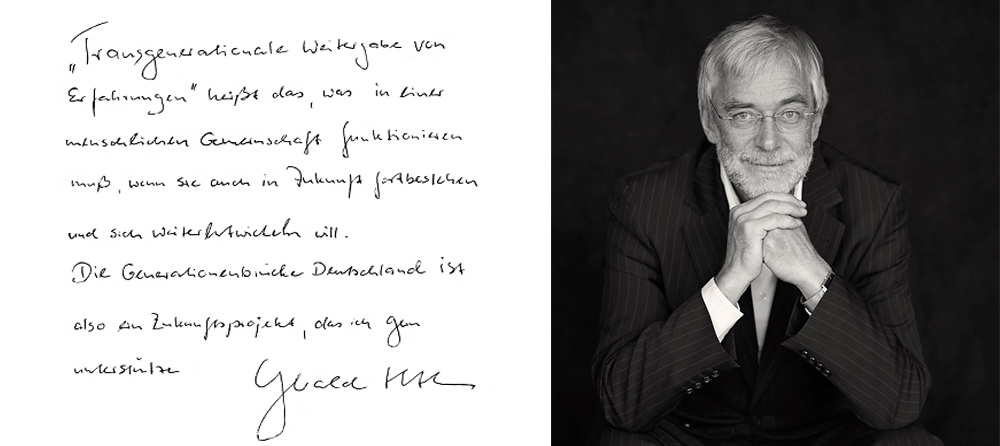 „Transgenerationale Weitergabe von
Erfahrungen" heißt das, was in einer
menschlichen Gemeinschaft funktionieren
muß, wenn sie auch in Zukunft fortbestehen
und sich weiterentwickeln will.
Die Generationenbrücke Deutschland ist
also ein Zukunftsprojekt, das ich gern
unterstütze
Gerald